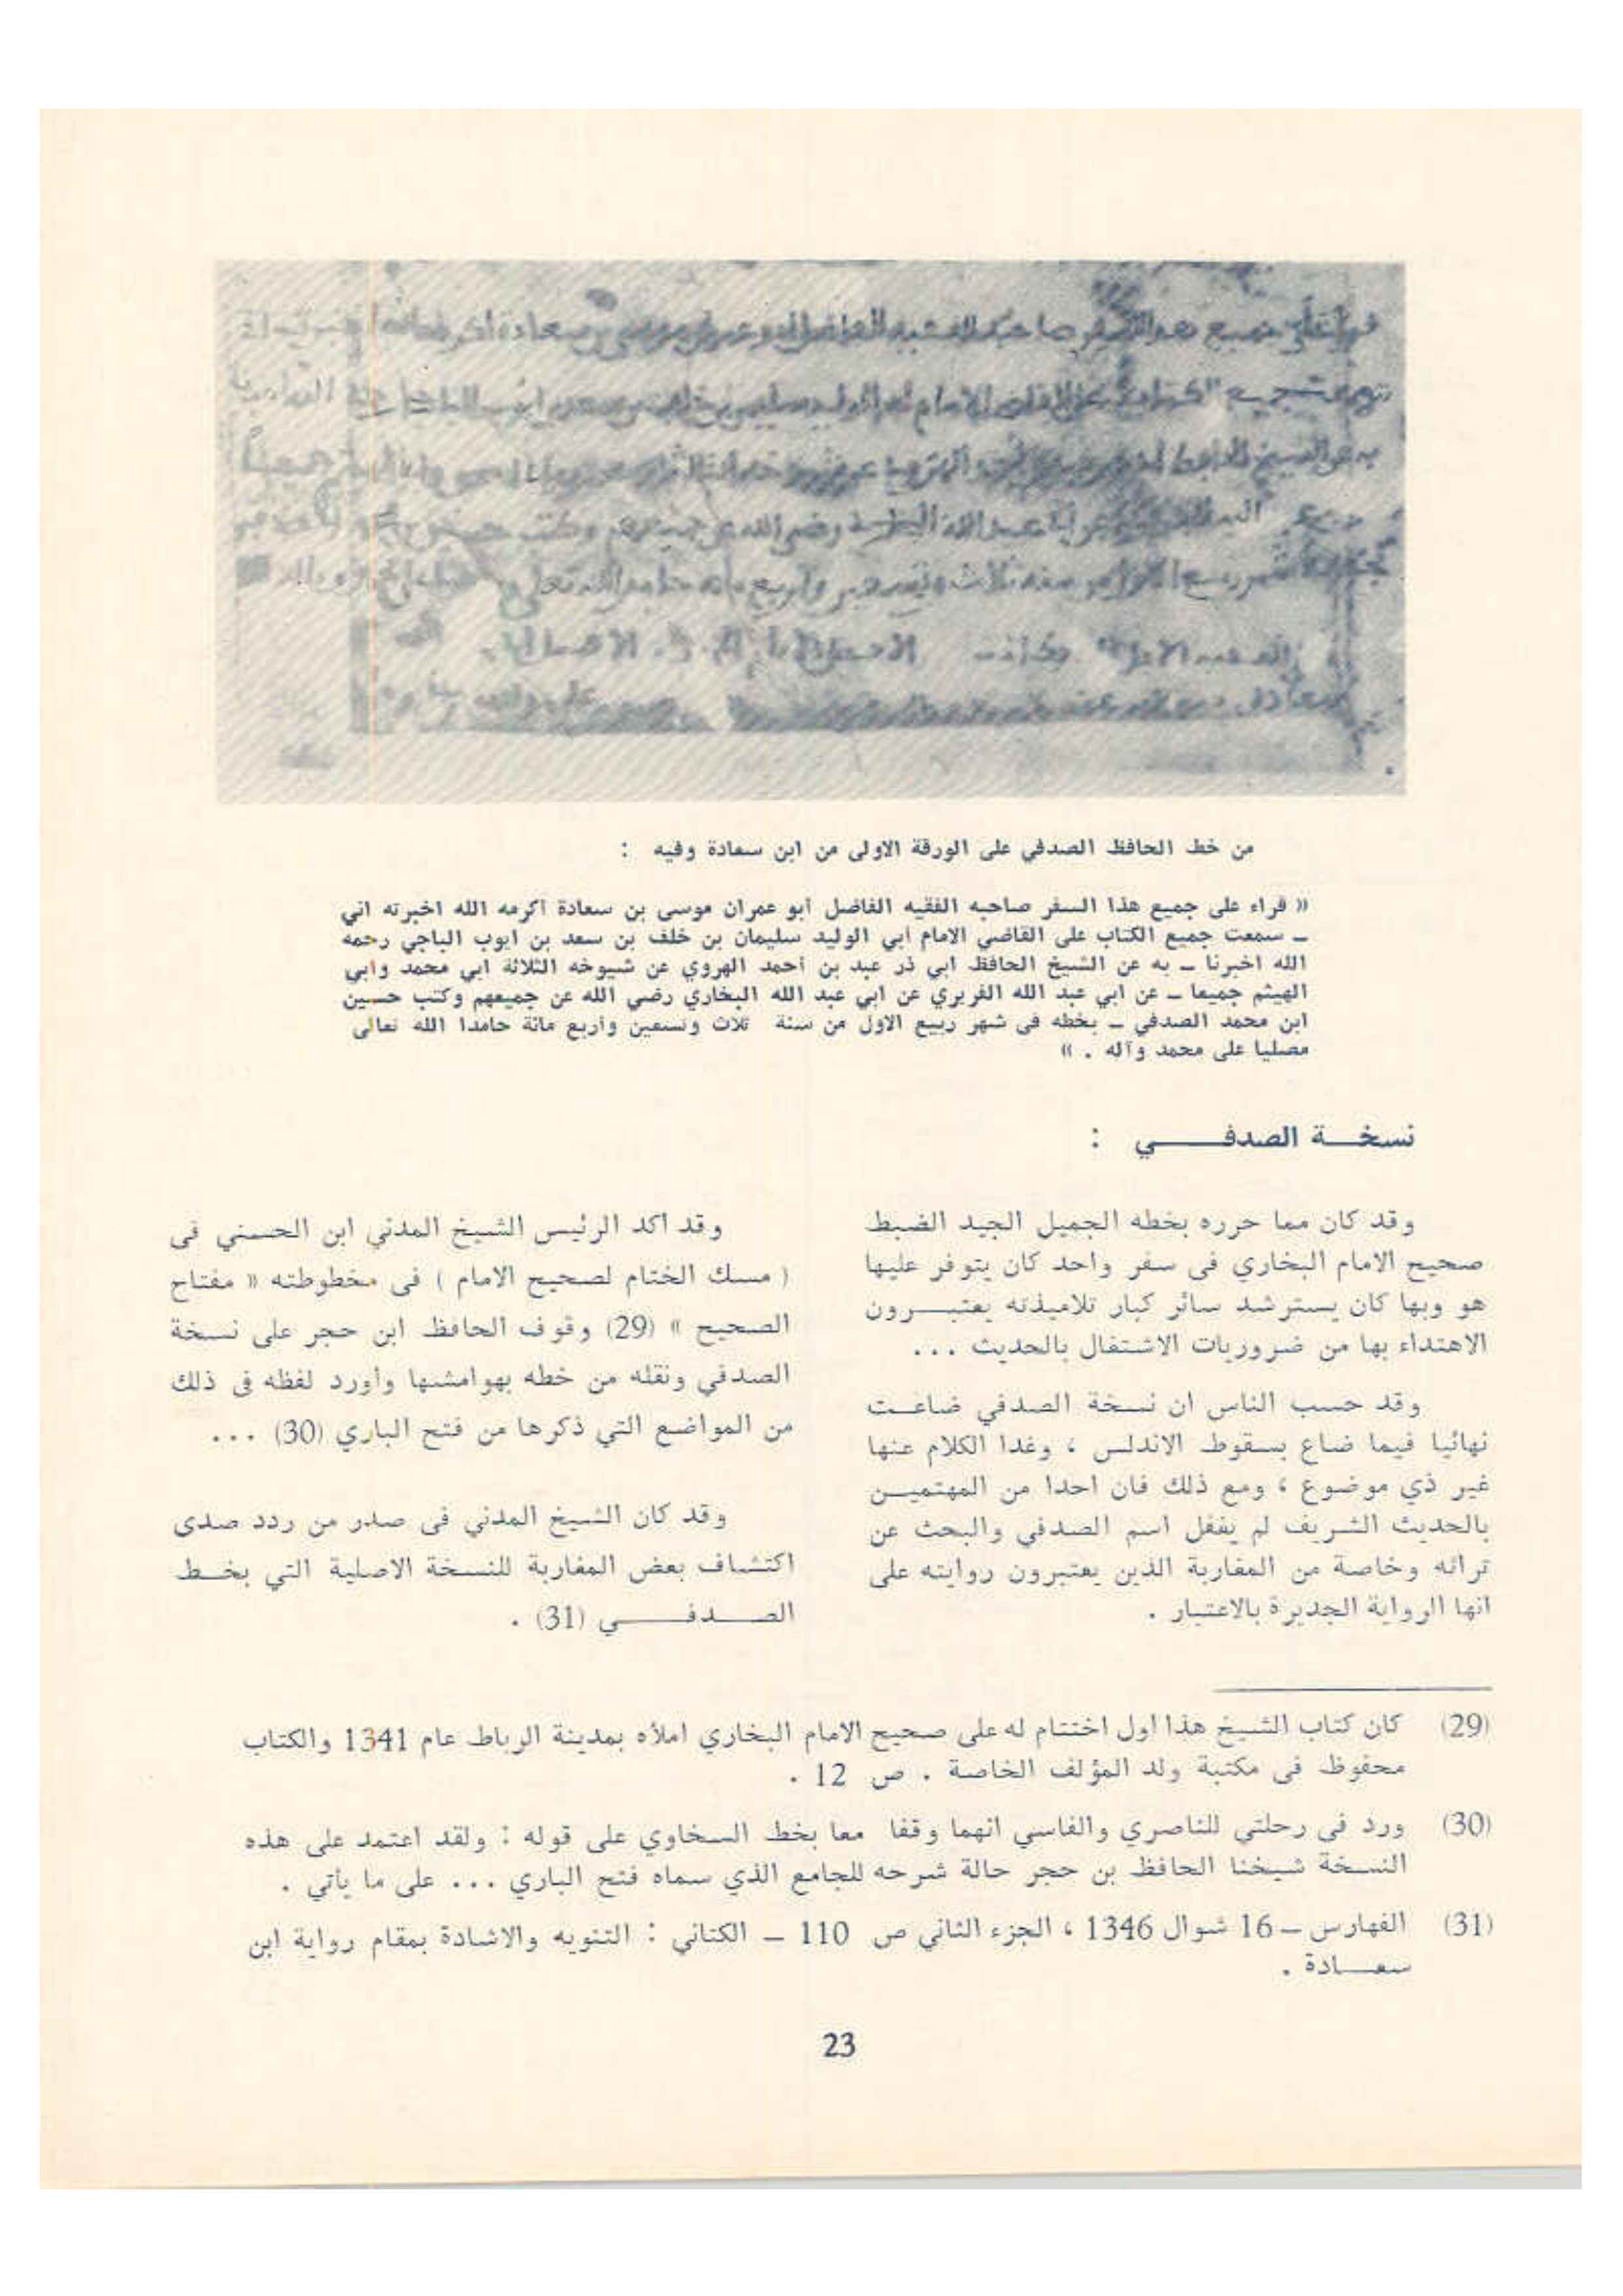 من خط الحافظ الصدفي على الورقة الاولى من ابن سعادة وفيه :
« قراء على جميع هذا السفر صاحبه الفقيه الفاضل أبو عمران موسى بن سعادة أكرمه الله اخبرته اني
ـ سمعت جميع الكتاب على القاضي الامام أبي الوليد سليمان بن خلف بن سعد بن ايوب الباجي رحمه
الله اخبرنا ـ به عن الشيخ الحافظ ابي ذر عبد بن أحمد الهروي عن شيوخه الثلاثة ابي محمد وأبي
الهيثم جميعا ـ عن ابي عبد الله الفربري عن ابي عبد الله البخاري رضي الله عن جميعهم وكتب حسين
ابن محمد الصدفي ـ بخطه فى شهر ربيع الاول من سنة ثلاث وتسعين وأربع مائة حامدا الله تعالى
مصليا على محمد وآله . »
نسخـة الصدفـــي :
وقد كان مما حرره بخطه الجميل الجيد الضبط
صحيح الامام البخاري فى سفر واحد كان يتوفر عليها
هو وبها كان يسترشد سائر كبار تلاميذته يعتبـــرون
الاهتداء بها من ضروريات الاشتغال بالحديث ...
وقد حسب الناس ان نسخة الصدفي ضاعـت
نهائيا فيما ضاع بسقوط الاندلس ، وغدا الكلام عنها
غير ذي موضوع ، ومع ذلك فان احدا من المهتميـن
بالحديث الشريف لم يغفل اسم الصدفي والبحث عن
تراثه وخاصة من المغاربة الذين يعتبرون روايته على
انها الرواية الجديرة بالاعتبار .
وقد اكد الرئيس الشيخ المدني ابن الحسني فى
( مسك الختام لصحيح الامام ) فى مخطوطته « مفتاح
الصحيح » (29) وقوف الحافظ ابن حجر على نسخة
الصدفي ونقله من خطه بهوامشها وأورد لفظه فى ذلك
من المواضع التي ذكرها من فتح الباري (30) ...
وقد كان الشيخ المدني فى صدر من ردد صدى
اكتشاف بعض المغاربة للنسخة الاصلية التي بخـط
الصـــدفـــــي (31) .
(29) كان كتاب الشيخ هذا اول اختتام له على صحيح الامام البخاري املأه بمدينة الرباط عام 1341 والكتاب
محفوظ فى مكتبة ولد المؤلف الخاصة . ص 12 .
(30) ورد فى رحلتي للناصري والفاسي انهما وقفا معا بخط السخاوي على قوله : ولقد اعتمد على هذه
النسخة شيخنا الحافظ بن حجر حالة شرحه للجامع الذي سماه فتح الباري ... على ما يأتي .
(31) الفهارس ـ 16 شوال 1346 ، الجزء الثاني ص 110 ـ الكتاني : التنويه والاشادة بمقام رواية ابن
سعــادة .
23